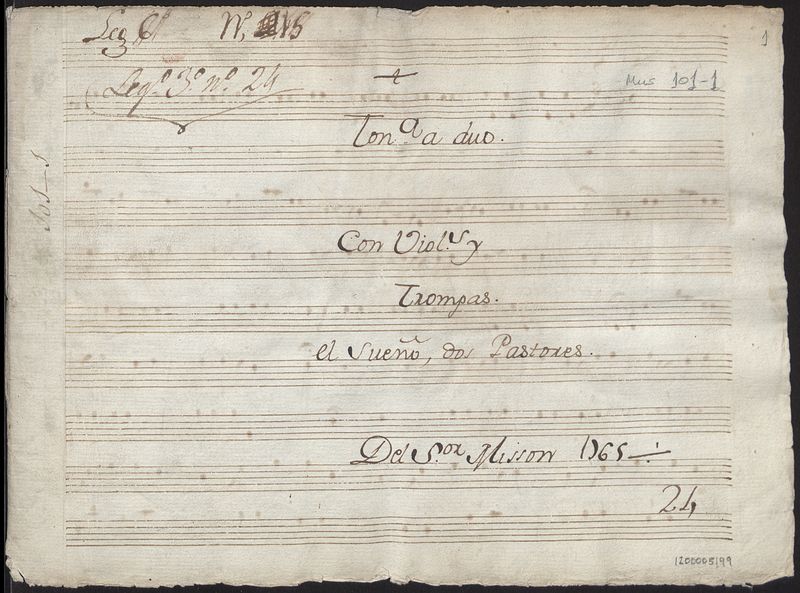 Leg 6º Nº 15
1
Legº 3º nº 24
Mus 101-1
Ton.ª a duo.
101-1
Con Viol.s y
Trompas.
el Sueño, dos Pastores.
Del S.or Misson 1765
24
1200005199